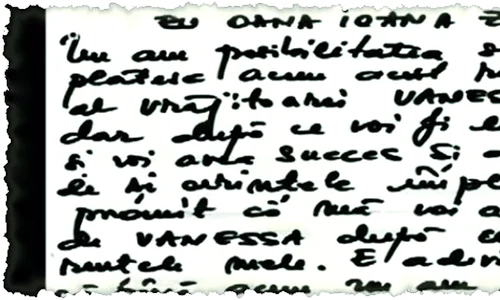 EU OANA IOANA
Nu am posibilitatea s
platesc acum acest
al vrăjitoarei VANES
dar după ce voi fi
si voi avea succes si
ie si dorintele împl
promit că mă voi
de VANESSA după
mele. E adev
acum nu am